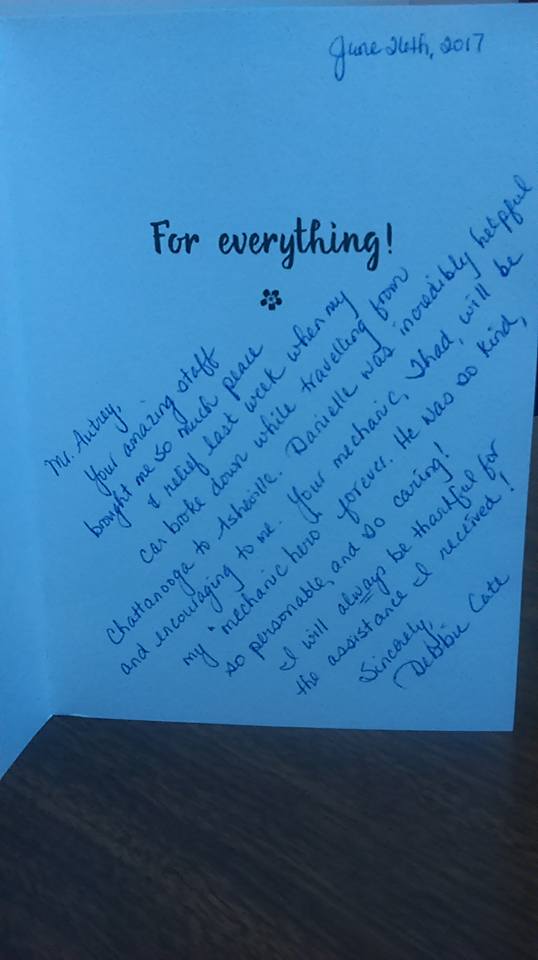 June 26th, 2017
For everything!
Mr. Autrey,
Your amazing staff
brought me so much peace
& relief last week when my
car broke down while travelling from
Chattanooga to Asheville. Danielle was incredibly helpful
and encouraging to me. Your mechanic, Thad, will be
my "mechanic hero" forever. He was so kind,
so personable, and so caring!
I will always be thankful for
the assistance I received!
Sincerely,
Debbie Cate